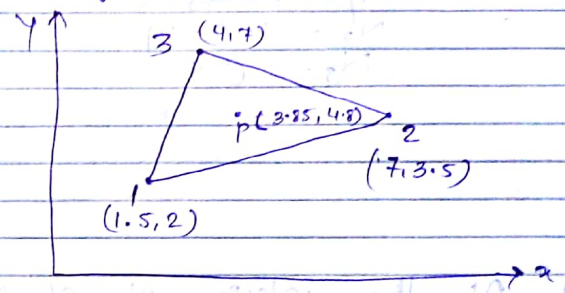 y
3 (4,7)
p(3.85, 4.8)
2
(7,3.5)
1
(1.5,2)
x